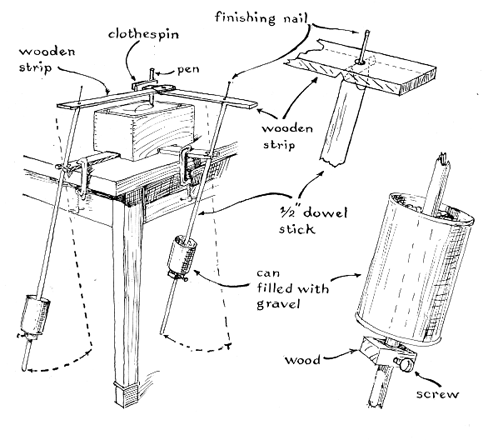 finishing nail
clothespin
wooden
strip
pen
wooden
strip
1/2" dowel
stick
can
filled with
gravel
wood
screw